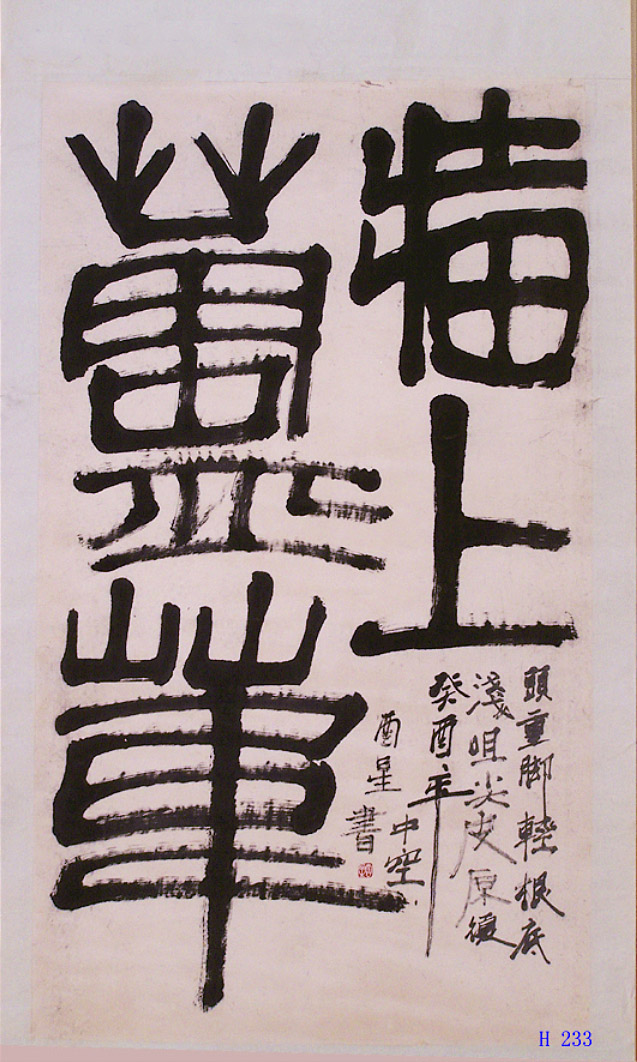 牆上
蘆葦
頭重脚輕根底
淺咀尖皮厚腹
中空
癸酉年
酉星書
H 233